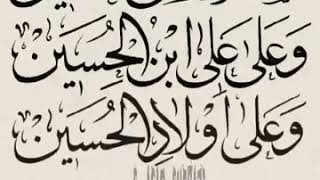 وَعَلىٰ عَلىِ ابْنِ الْحُسَيْنِ
وَعَلىٰ أَوْلَادِ الْحُسَيْنِ